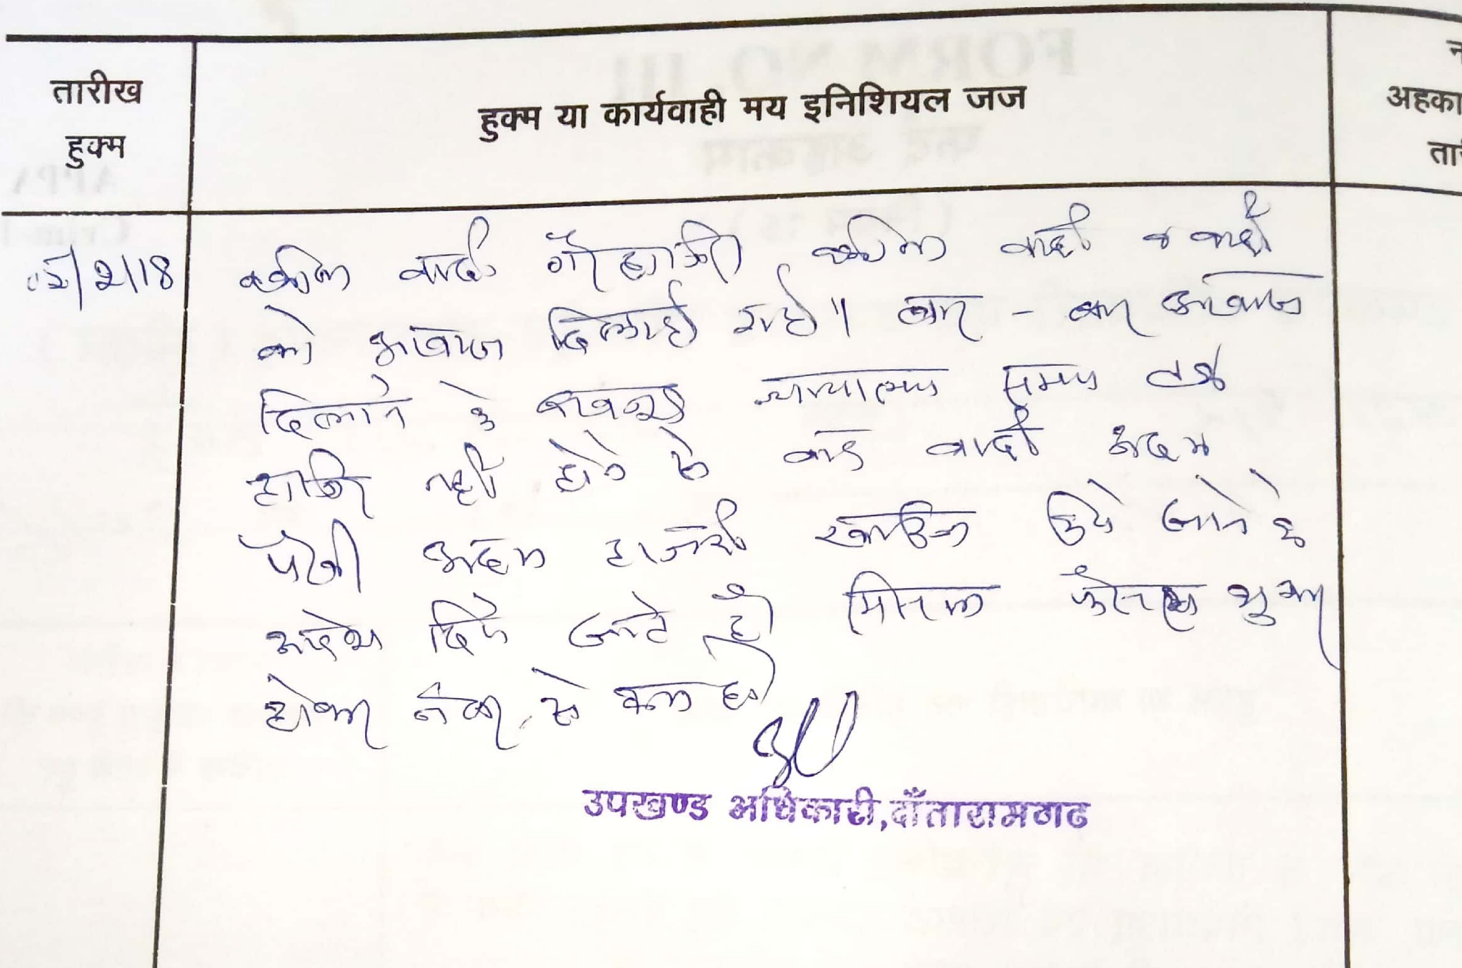 तारीख
हुक्म
हुक्म या कार्यवाही मय इनिशियल जज
अहका
ता
/2/18
वकील वादी गैर हाजिर वकील वादी व वादी
को आवाज दिलाई गई। बार - बार आवाज
दिलाने के बावजूद न्यायालय समय तक
हाजिर नहीं होने से वाद वादी अदम
पैरवी अदम हाजरी खारिज किये जाने के
आदेश दिये जाते है। मिसल फैसल शुमार
होकर नंबर से कम हो।
उपखण्ड अधिकारी,दाँतारामगढ